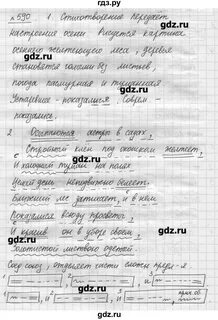 №590 1. Стихотворение передает
настроение осени. Рисуется картина
осеннего желтеющего леса, деревья
становятся голыми без листьев,
погода пасмурная и туманная
Устаревшее - показалися. Соврем -
показались.
2 Осыпаются астры в садах,
Стройный клен под окошком желтеет,
И холодный туман на полях
Целый день неподвижно белеет.
Ближний лес затихает, и в нем
Показалися всюду просветы,
И красив он в уборе своем,
Золотистой листвою одетый.
Соед. союз, отделяет части сложн предл-я.